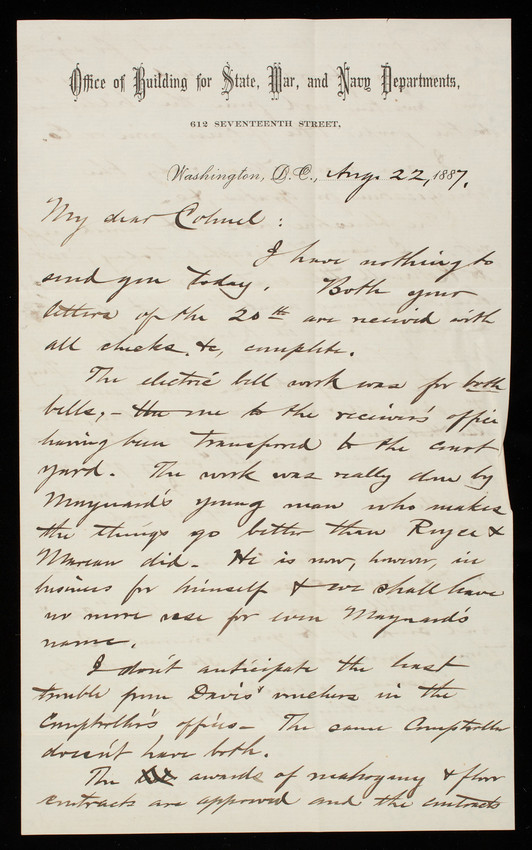 Office of Building for State, War, and Navy Departments,
612 SEVENTEENTH STREET,
Washington, D.C., Aug. 22, 1887.
My dear Colonel:
I have nothing to
send you today. Both your
letters of the 20th are received with
all checks, &c, complete.
The electric bell work was for both
bells, – the one to the receiver's office
having been transferred to the court
yard. The work was really done by
Maynard's young man who makes
the things go better than Royce &
Marean did – He is now, however, in
business for himself & we shall have
no more use for even Maynard's
name.
I don't anticipate the least
trouble from Davis' vouchers in the
Comptroller's office – The same Comptroller
doesn't have both.
The awards of mahogany & floor
contracts are approved and the contracts